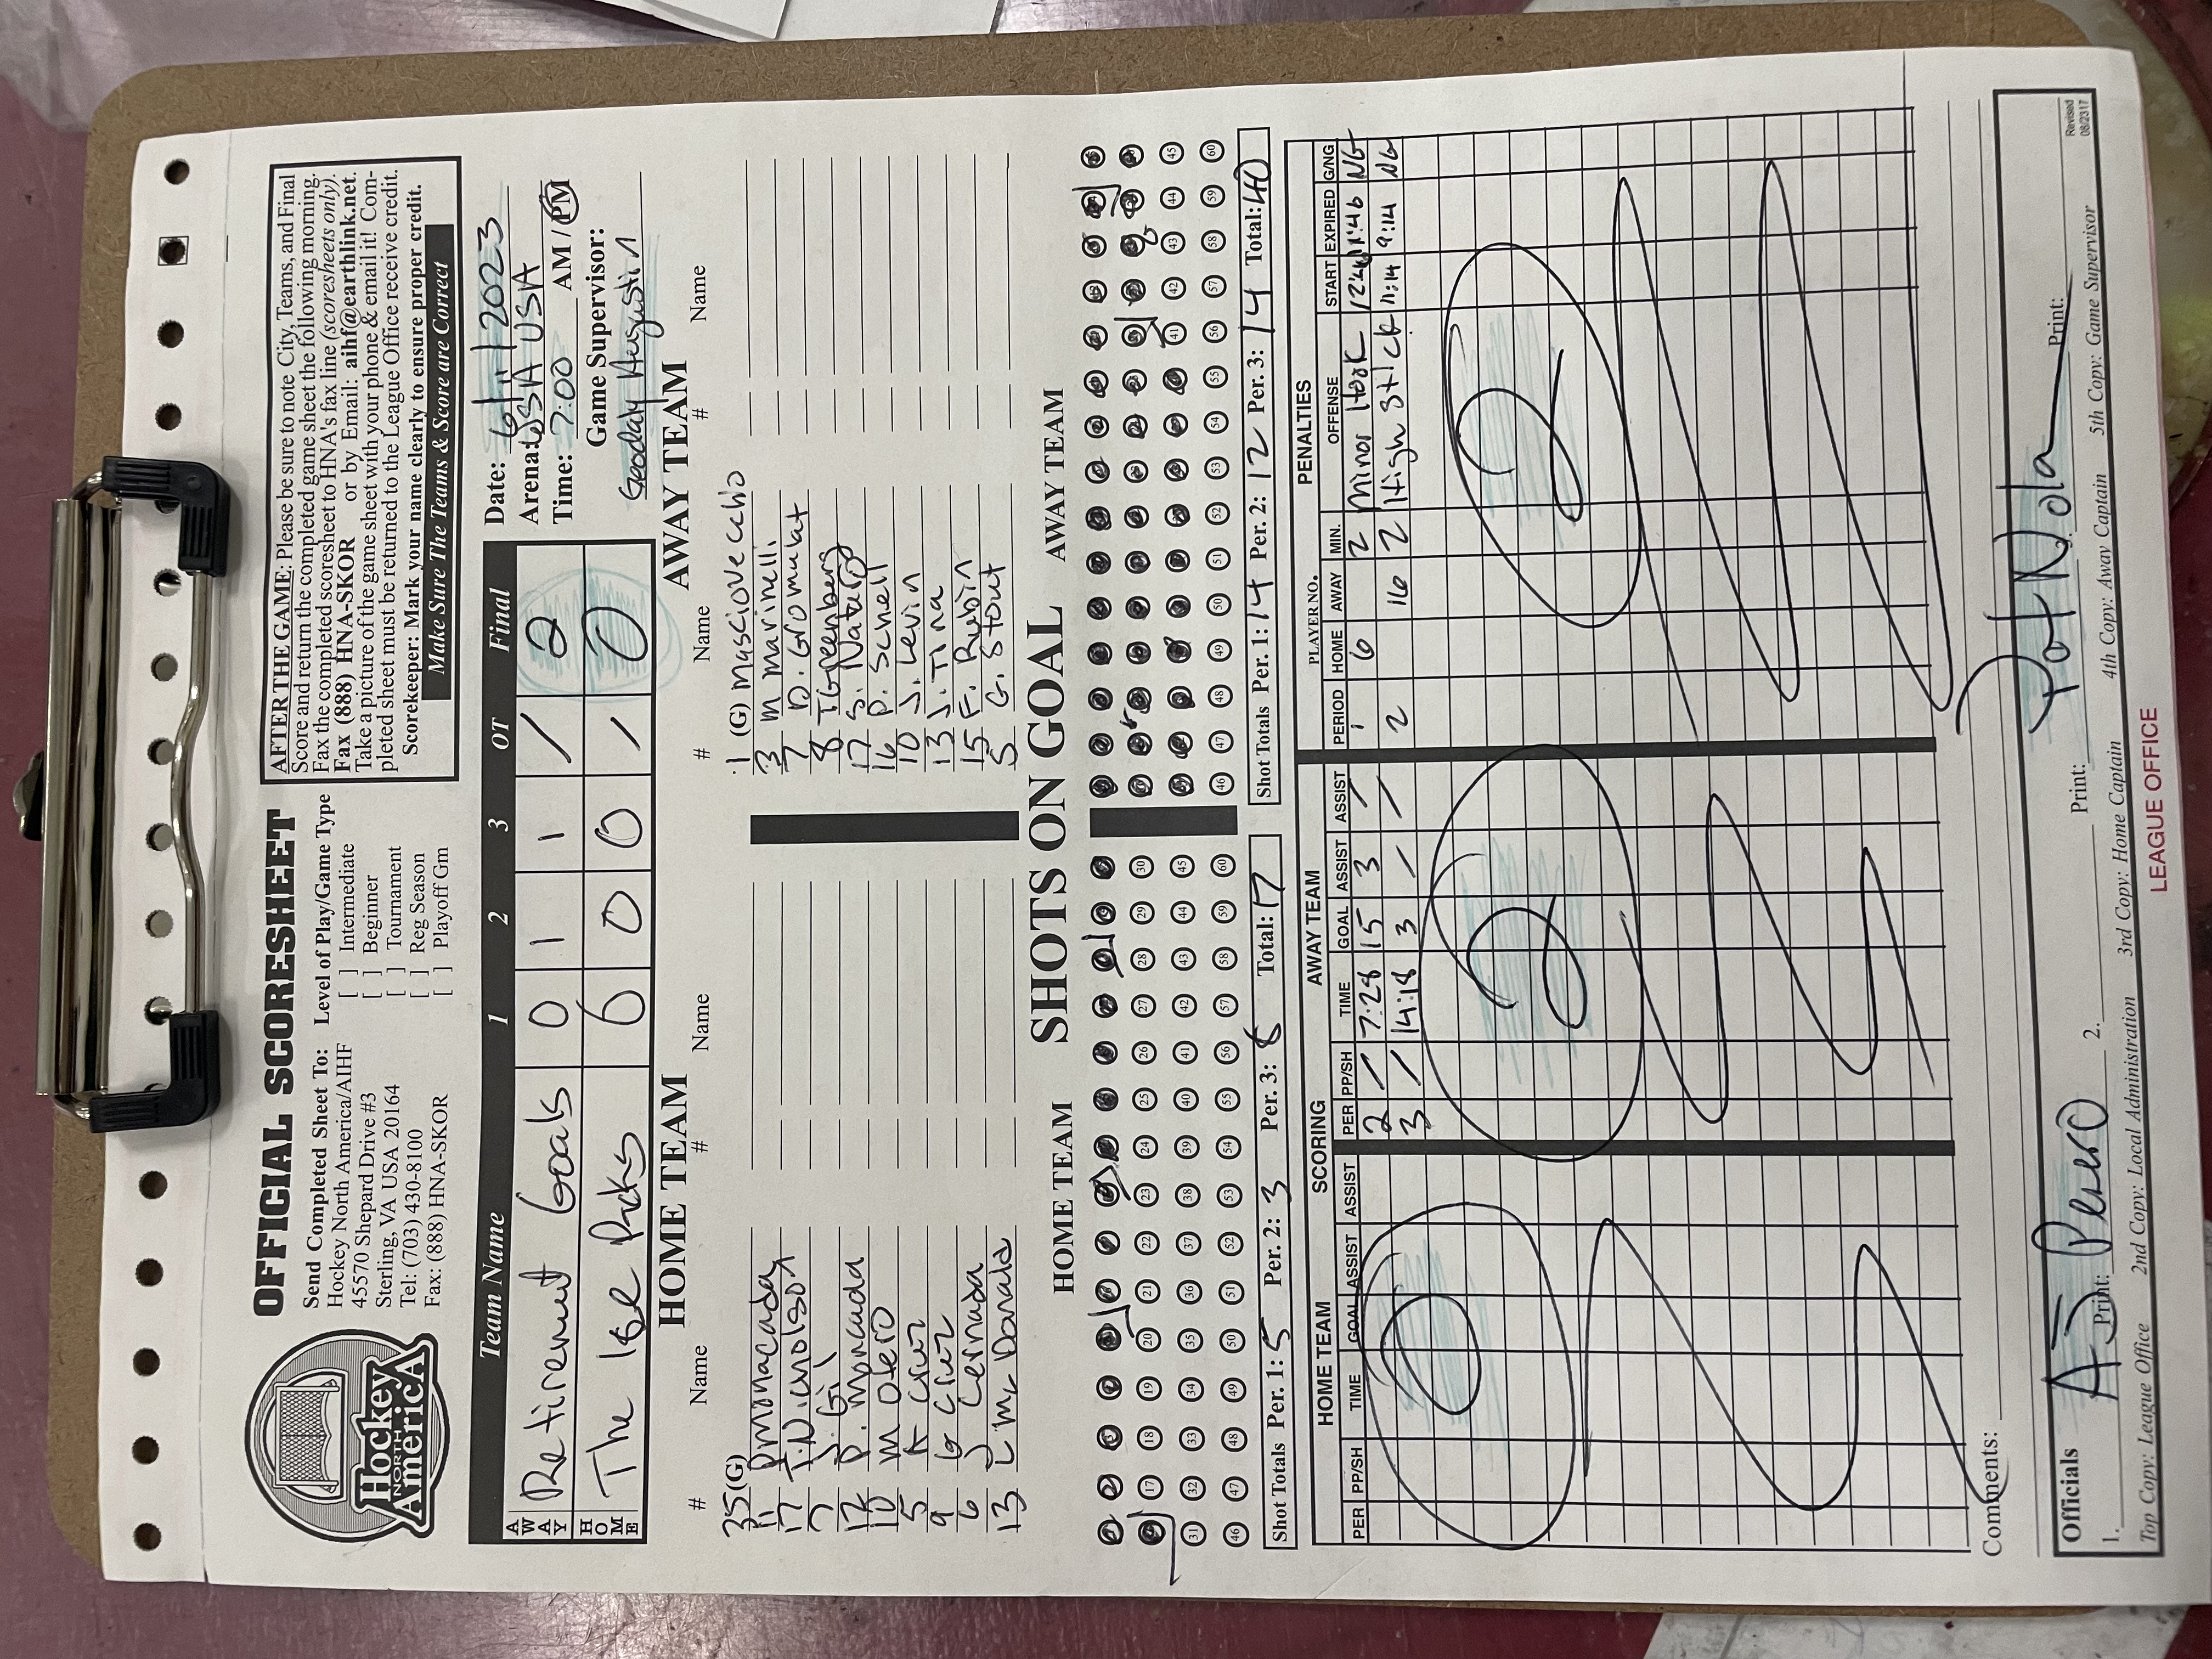 OFFICIAL SCORESHEET
Hockey
NORTH
AmericA
Send Completed Sheet To:
Hockey North America/AIHF
45570 Shepard Drive #3
Sterling, VA USA 20164
Tel: (703) 430-8100
Fax: (888) HNA-SKOR
Level of Play/Game Type
[ ] Intermediate
[ ] Beginner
[ ] Tournament
[ ] Reg Season
[ ] Playoff Gm
AFTER THE GAME: Please be sure to note City, Teams, and Final
Score and return the completed game sheet the following morning.
Fax the completed scoresheet to HNA's fax line (scoresheets only).
Fax (888) HNA-SKOR or by Email: aihf@earthlink.net.
Take a picture of the game sheet with your phone & email it! Com-
pleted sheet must be returned to the League Office receive credit.
Scorekeeper: Mark your name clearly to ensure proper credit.
Make Sure The Teams & Score are Correct
Team Name 1 2 3 OT Final
AWAY Retirement Goals 0 1 1 / 2
HOME The Ice 0 0 0 / 0
Date: 6/11/2023
Arena: USA
Time: 7:00 AM / PM
Game Supervisor:
HOME TEAM
# Name # Name
35 (G)
11 P monacada
17 T. Nicholson
7 J. Gil
12 P. moncada
10 m Otero
5 K Cruz
9 G Cruz
6 J Cernada
13 L McDonald
AWAY TEAM
# Name # Name
1 (G) Masciovecchio
3 M marinelli
7 D. Gromulat
8 I Greenberg
17 S. Naturo
16 P. Schnell
10 J. Levin
13 J. Tina
15 F. Rubin
5 G. Stout
SHOTS ON GOAL
HOME TEAM AWAY TEAM
17 18 19 20 21 22 23 24 25 26 27 28 29 30
31 32 33 34 35 36 37 38 39 40 41 42 43 44 45
46 47 48 49 50 51 52 53 54 55 56 57 58 59 60
41 42 43 44 45
46 47 48 49 50 51 52 53 54 55 56 57 58 59 60
Shot Totals Per. 1: 5 Per. 2: 3 Per. 3: Total: 17
Shot Totals Per. 1: 14 Per. 2: 12 Per. 3: 14 Total: 40
SCORING
HOME TEAM
PER PP/SH TIME GOAL ASSIST ASSIST
0
AWAY TEAM
PER PP/SH TIME GOAL ASSIST ASSIST
2 / 7:28 15 3 /
3 / 14:18 3 / /
2
PENALTIES
PLAYER NO.
PERIOD HOME AWAY MIN. OFFENSE START EXPIRED G/NG
1 6 2 minor Hook NG
2 16 2 High Stick 11:14 9:14 NG
2
Comments:
Officials
1. Print: AJ 2. Print: Pat Nola Print:
Top Copy: League Office 2nd Copy: Local Administration 3rd Copy: Home Captain 4th Copy: Away Captain 5th Copy: Game Supervisor
Revised
08/2317
LEAGUE OFFICE